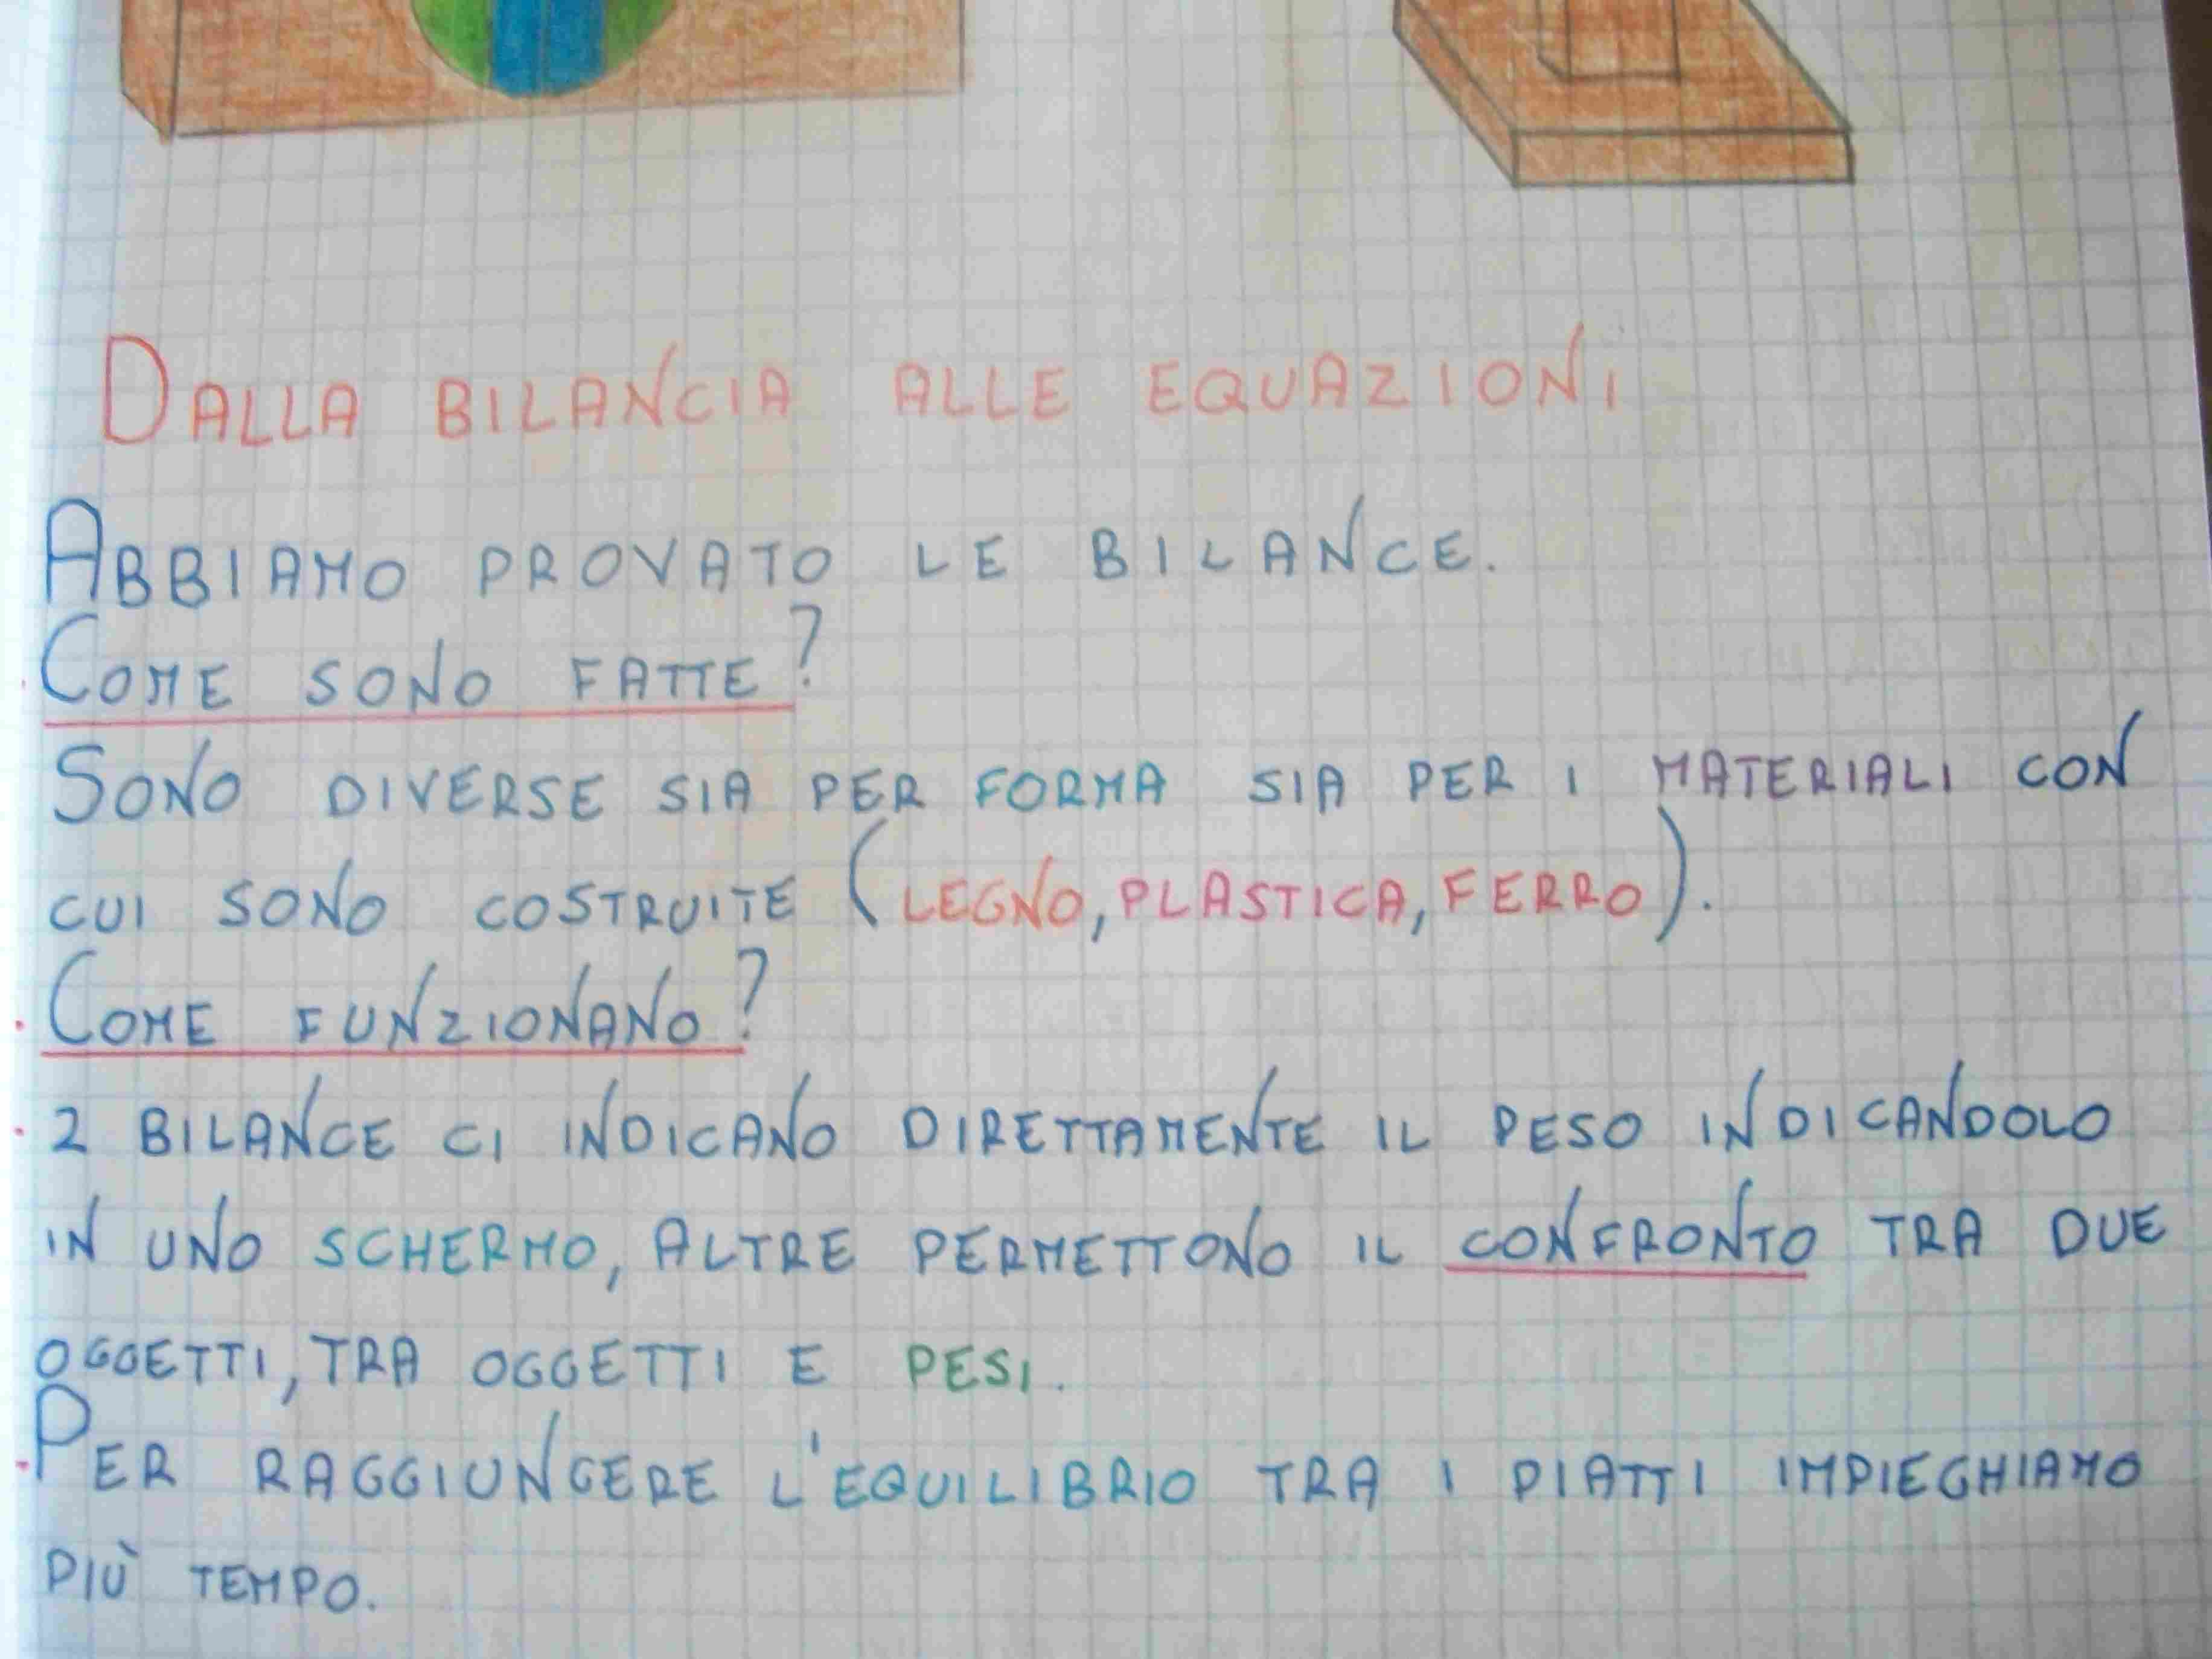 DALLA BILANCIA ALLE EQUAZIONI
ABBIAMO PROVATO LE BILANCE.
COME SONO FATTE?
SONO DIVERSE SIA PER FORMA SIA PER I MATERIALI CON
CUI SONO COSTRUITE (LEGNO, PLASTICA, FERRO).
COME FUNZIONANO?
2 BILANCE CI INDICANO DIRETTAMENTE IL PESO INDICANDOLO
IN UNO SCHERMO, ALTRE PERMETTONO IL CONFRONTO TRA DUE
OGGETTI, TRA OGGETTI E PESI.
PER RAGGIUNGERE L'EQUILIBRIO TRA I PIATTI IMPIEGHIAMO
PIÙ TEMPO.